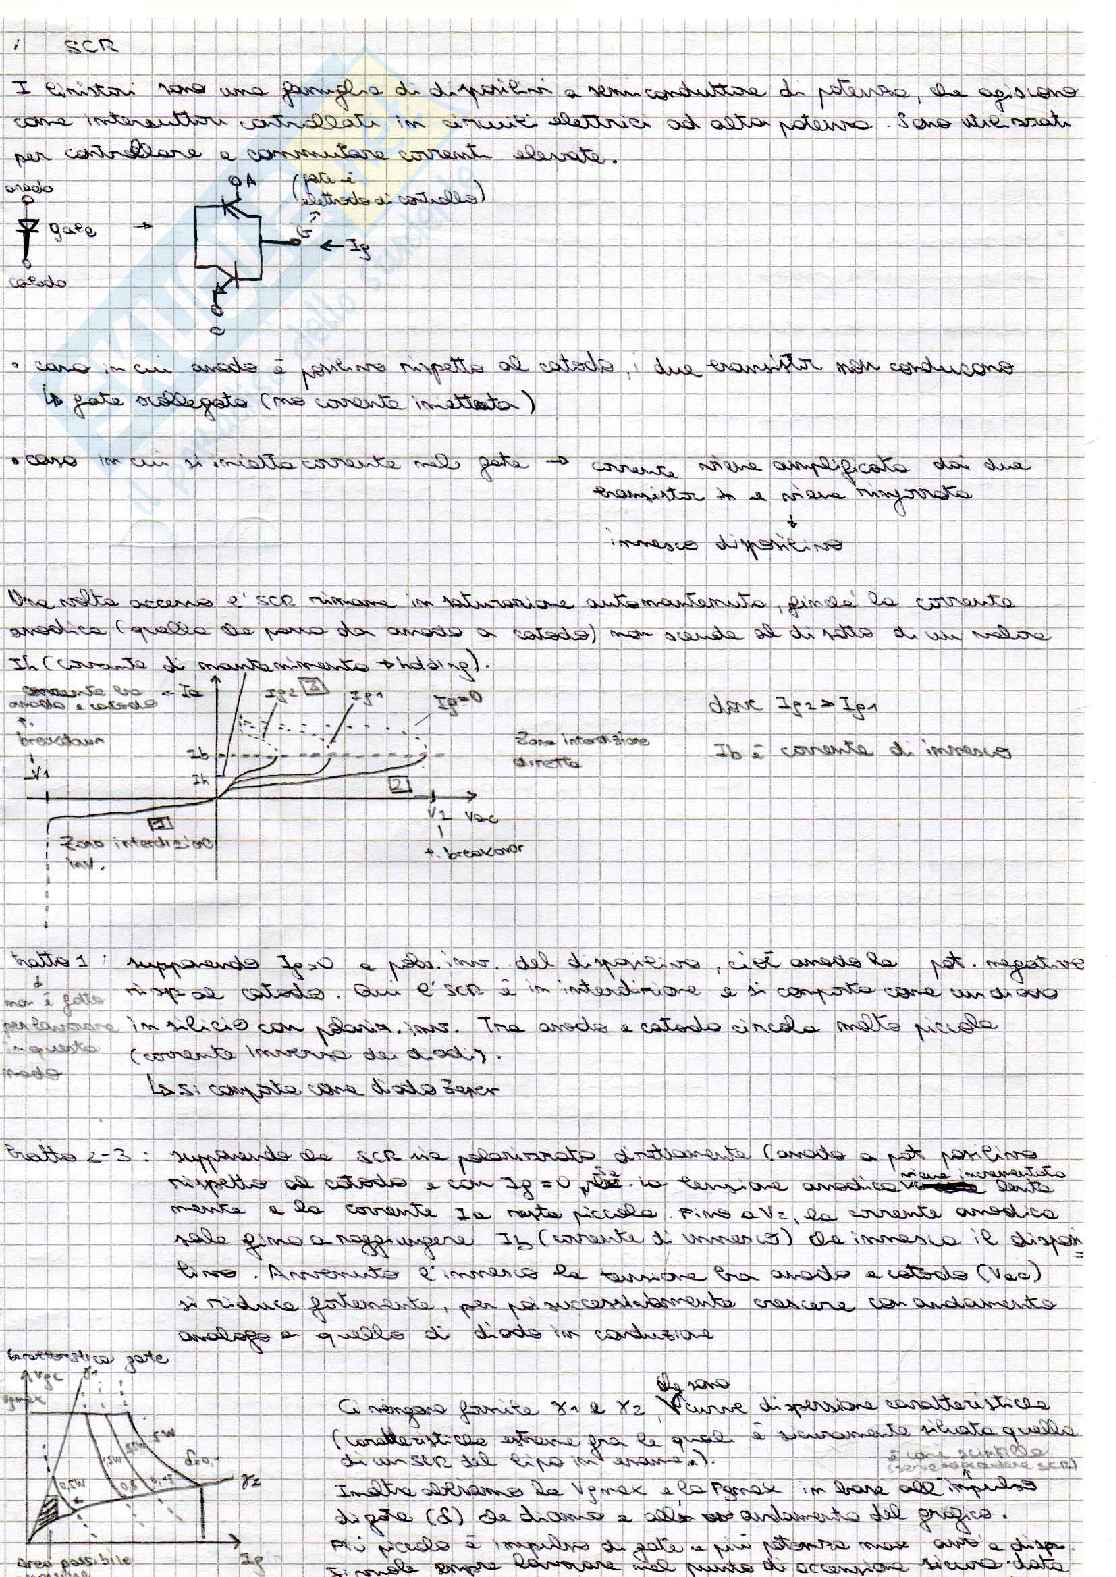 SCR
I tiristori sono una famiglia di dispositivi a semiconduttore di potenza, che agiscono
come interruttori controllati in circuiti elettrici ad alta potenza. Sono utilizzati
per controllare e commutare correnti elevate.
anodo
gate
catodo
A
(gate è
elettrodo di controllo)
G
Ig
C
• caso in cui anodo è positivo rispetto al catodo, i due transistor non conducono
↳ gate scollegato (no corrente iniettata)
• caso in cui si inietta corrente nel gate → corrente viene amplificata dai due
transistor e viene rinforzata
↓
innesco dispositivo
Una volta acceso l'SCR rimane in saturazione automantenuta, finché la corrente
anodica (quella che passa da anodo a catodo) non scende al di sotto di un valore
Ih (corrente di mantenimento → holding).
corrente tra
anodo e catodo
Ia
Ig2
3
Ig1
Ig=0
dove Ig2 > Ig1
t. breakdown
Ib
Zona interdizione
diretta
Ib è corrente di innesco
V1
Ih
2
V2
Vac
1
Zona interdizione
inv.
t. breakover
tratto 1: supponendo Ig=0 e polar. inv. del dispositivo, cioè anodo ha pot. negativo
risp al catodo. Qui l'SCR è in interdizione e si comporta come un diodo
in silicio con polariz. inv. Tra anodo e catodo circola molto piccola
(corrente inversa dei diodi).
↳ Si comporta come diodo Zener
non è fatto
per lavorare
in questo
modo
tratto 2-3: supponendo che SCR sia polarizzato direttamente (anodo a pot positivo
rispetto al catodo e con Ig=0, la tensione anodica viene incrementata lenta
mente e la corrente Ia resta piccola. Fino a V2, la corrente anodica
sale fino a raggiungere Ib (corrente di innesco) che innesca il disposi
tivo. Avvenuto l'innesco la tensione tra anodo e catodo (Vac)
si riduce fortemente, per poi successivamente crescere con andamento
analogo a quello di diodo in conduzione
Caratteristica gate
Vgc
Vgmax
γ1
γ2
Ig
Area possibile
Ci vengono fornite γ1 e γ2, che sono curve dispersione caratteristiche
(caratteristiche estreme fra le quali è sicuramente situata quella
di un SCR del tipo in esame).
Inoltre abbiamo la Vgmax e la Pgmax in base all'impulso
di gate (δ) che diamo e all'andamento del grafico.
Più piccolo è impulso di gate e più potenza max avrò a disp.
Si vuole sempre lavorare nel punto di accensione sicura date